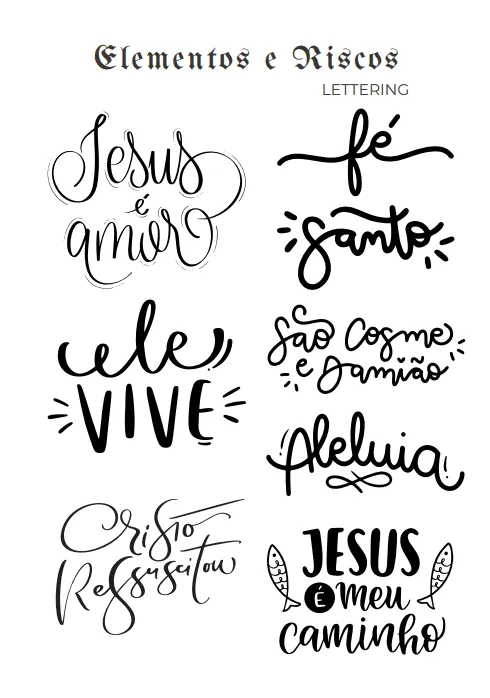 Elementos e Riscos
LETTERING
Jesus
é
amor
fé
santo
ele
VIVE
São Cosme
e Damião
Aleluia
Cristo
Ressuscitou
JESUS
É meu
caminho